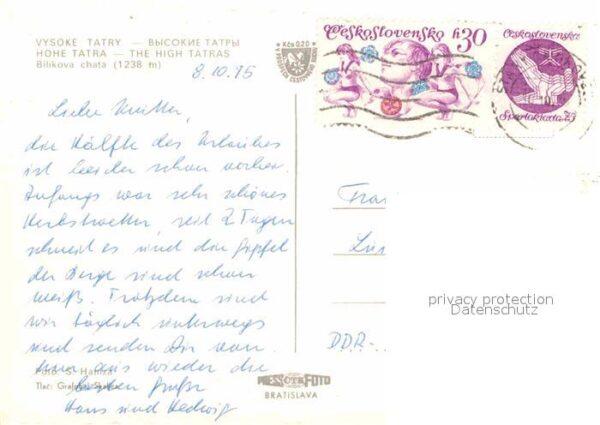 VYSOKÉ TATRY — ВЫСОКИЕ ТАТРЫ
HOHE TATRA — THE HIGH TATRAS
Bilíkova chata (1238 m)
8.10.75
Kčs 0,20
Československo h30
Československo
Spartakiáda 75
Liebe Mutter,
die Hälfte des Urlaubes
ist leider schon vorbei.
Anfangs war sehr schönes
Herbstwetter, seit 2 Tagen
schneit es und die Gipfel
der Berge sind schon
weiß. Trotzdem sind
wir täglich unterwegs
und senden Dir von
hier aus wieder die
besten Grüße
Hans und Hedwig
Foto: S. Hanza
Tlač:
DDR-
privacy protection
Datenschutz
PRESSFOTO
BRATISLAVA